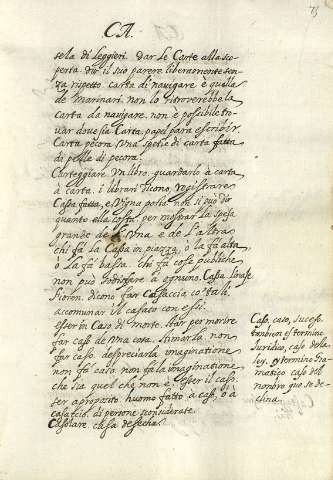 CA.
75
sela di Leggieri. Dar le Carte alla sco
perta. Dir il suo parere liberamente sen
za rispetto. carta di navigare è quella
de Marinari. non lo ritroverebbe la
carta da navigare. non è possibile tro
var dove sia. Carta, papel para escribir
Carta pecora una spetie di carta fatta
di pelle di pecora.
Carteggiare un libro. guardarlo à carta
à carta. i librari dicono, registrare
Casa fatta, e Vigna posta non si può dir
quanto ella costa. per mostrar la spesa
grande de l'una e de l'altra
chi fà la Casa in piazza, ò la fà alta
ò la fà bassa. chi fà cose publiche
non può sodisfare à ognuno. Casa
dicono far Casaccia co' tali.
accomunar il casato con essi.
esser in Caso di morte. star per morire
far caso de una cosa. stimarla. non
far caso. despreciarla. imaginatione
non fà caso. non fà la imaginatione
che sia quel che non è. esser il caso.
ser aproposito. huomo fatto à caso, ò à
casaccio. di persone sconsiderate.
Casolare. casa desecha.
Caso, caso, sucesso
tambien es termino
Juridico, caso de la
ley. es termino Gra
matico caso del
nombre que se de
clina.